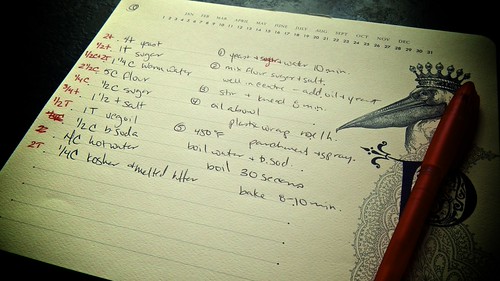 JAN FEB MAR APRIL MAY JUNE JULY AUG SEPT OCT NOV DEC
1 2 3 4 5 6 7 8 9 10 11 12 13 14 15 16 17 18 19 20 21 22 23 24 25 26 27 28 29 30 31
2t. 4t yeast
1/2t. 1T sugar
1/2C+2T 1 1/4C warm water
2 1/2C 5C flour
1/4C 1/2C sugar
3/4t. 1 1/2 t salt
1/2T 1T veg oil
1/2C b soda
4C hot water
2T 1/4C kosher + melted bttr
① yeast + sugar + water 10 min.
② mix flour sugar + salt.
well in centre - add oil + yeast
③ stir + knead 8 min.
④ oil a bowl
plastic wrap rise 1h.
⑤ 450°F parchment + spray.
boil water + b.sod.
boil 30 seconds
bake 8-10 min.